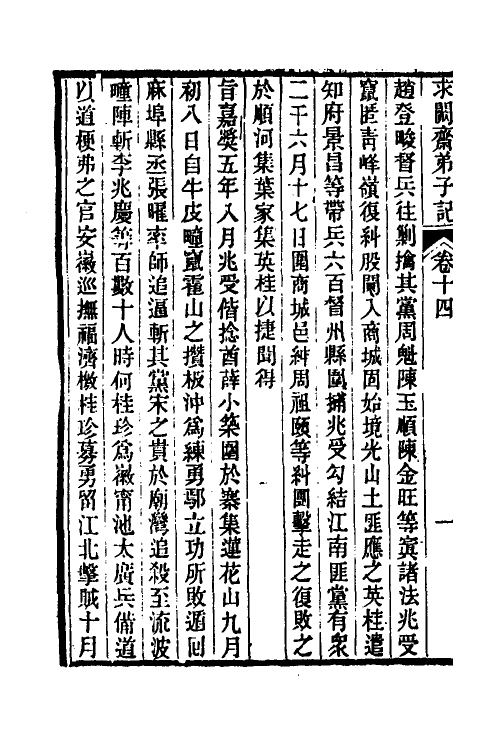 求闕齋弟子記 卷十四 一
趙登畯督兵往剿擒其黨周魁陳玉順陳金旺等寘諸法兆受
竄匿靑峰嶺復糾股闌入商城固始境光山土匪應之英桂遣
知府景昌等帶兵六百督州縣圍捕兆受勾結江南匪黨有衆
二千六月十七日圍商城邑紳周祖頤等糾團擊走之復敗之
於順河集葉家集英桂以捷聞得
旨嘉獎五年八月兆受偕捻酋薛小築圍於寨集蓮花山九月
初八日自牛皮畽竄霍山之攢板沖爲練勇鄢立功所敗遁回
麻埠縣丞張曜率師追逼斬其黨宋之貫於廟灣追殺至流波
畽陣斬李兆慶等百數十人時何桂珍爲徽甯池太廣兵備道
以道梗弗之官安徽巡撫福濟檄桂珍募勇留江北擊賊十月